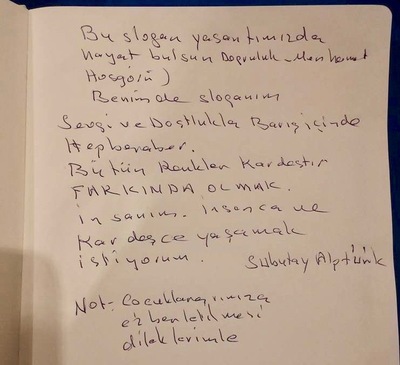 Bu slogan yaşantımızda
hayat bulsun Doğruluk - Merhamet
Hoşgörü)
Benimde sloganım
Sevgi ve Dostlukla Barış içinde
Hepberaber.
Bütün Renkler Kardeştir
FARKINDA OLMAK.
insanım. insanca ve
Kardeşce yaşamak
istiyorum. Subutay Alptürk
Not:- Çocuklarımıza
ezberletilmesi
dileklerimle